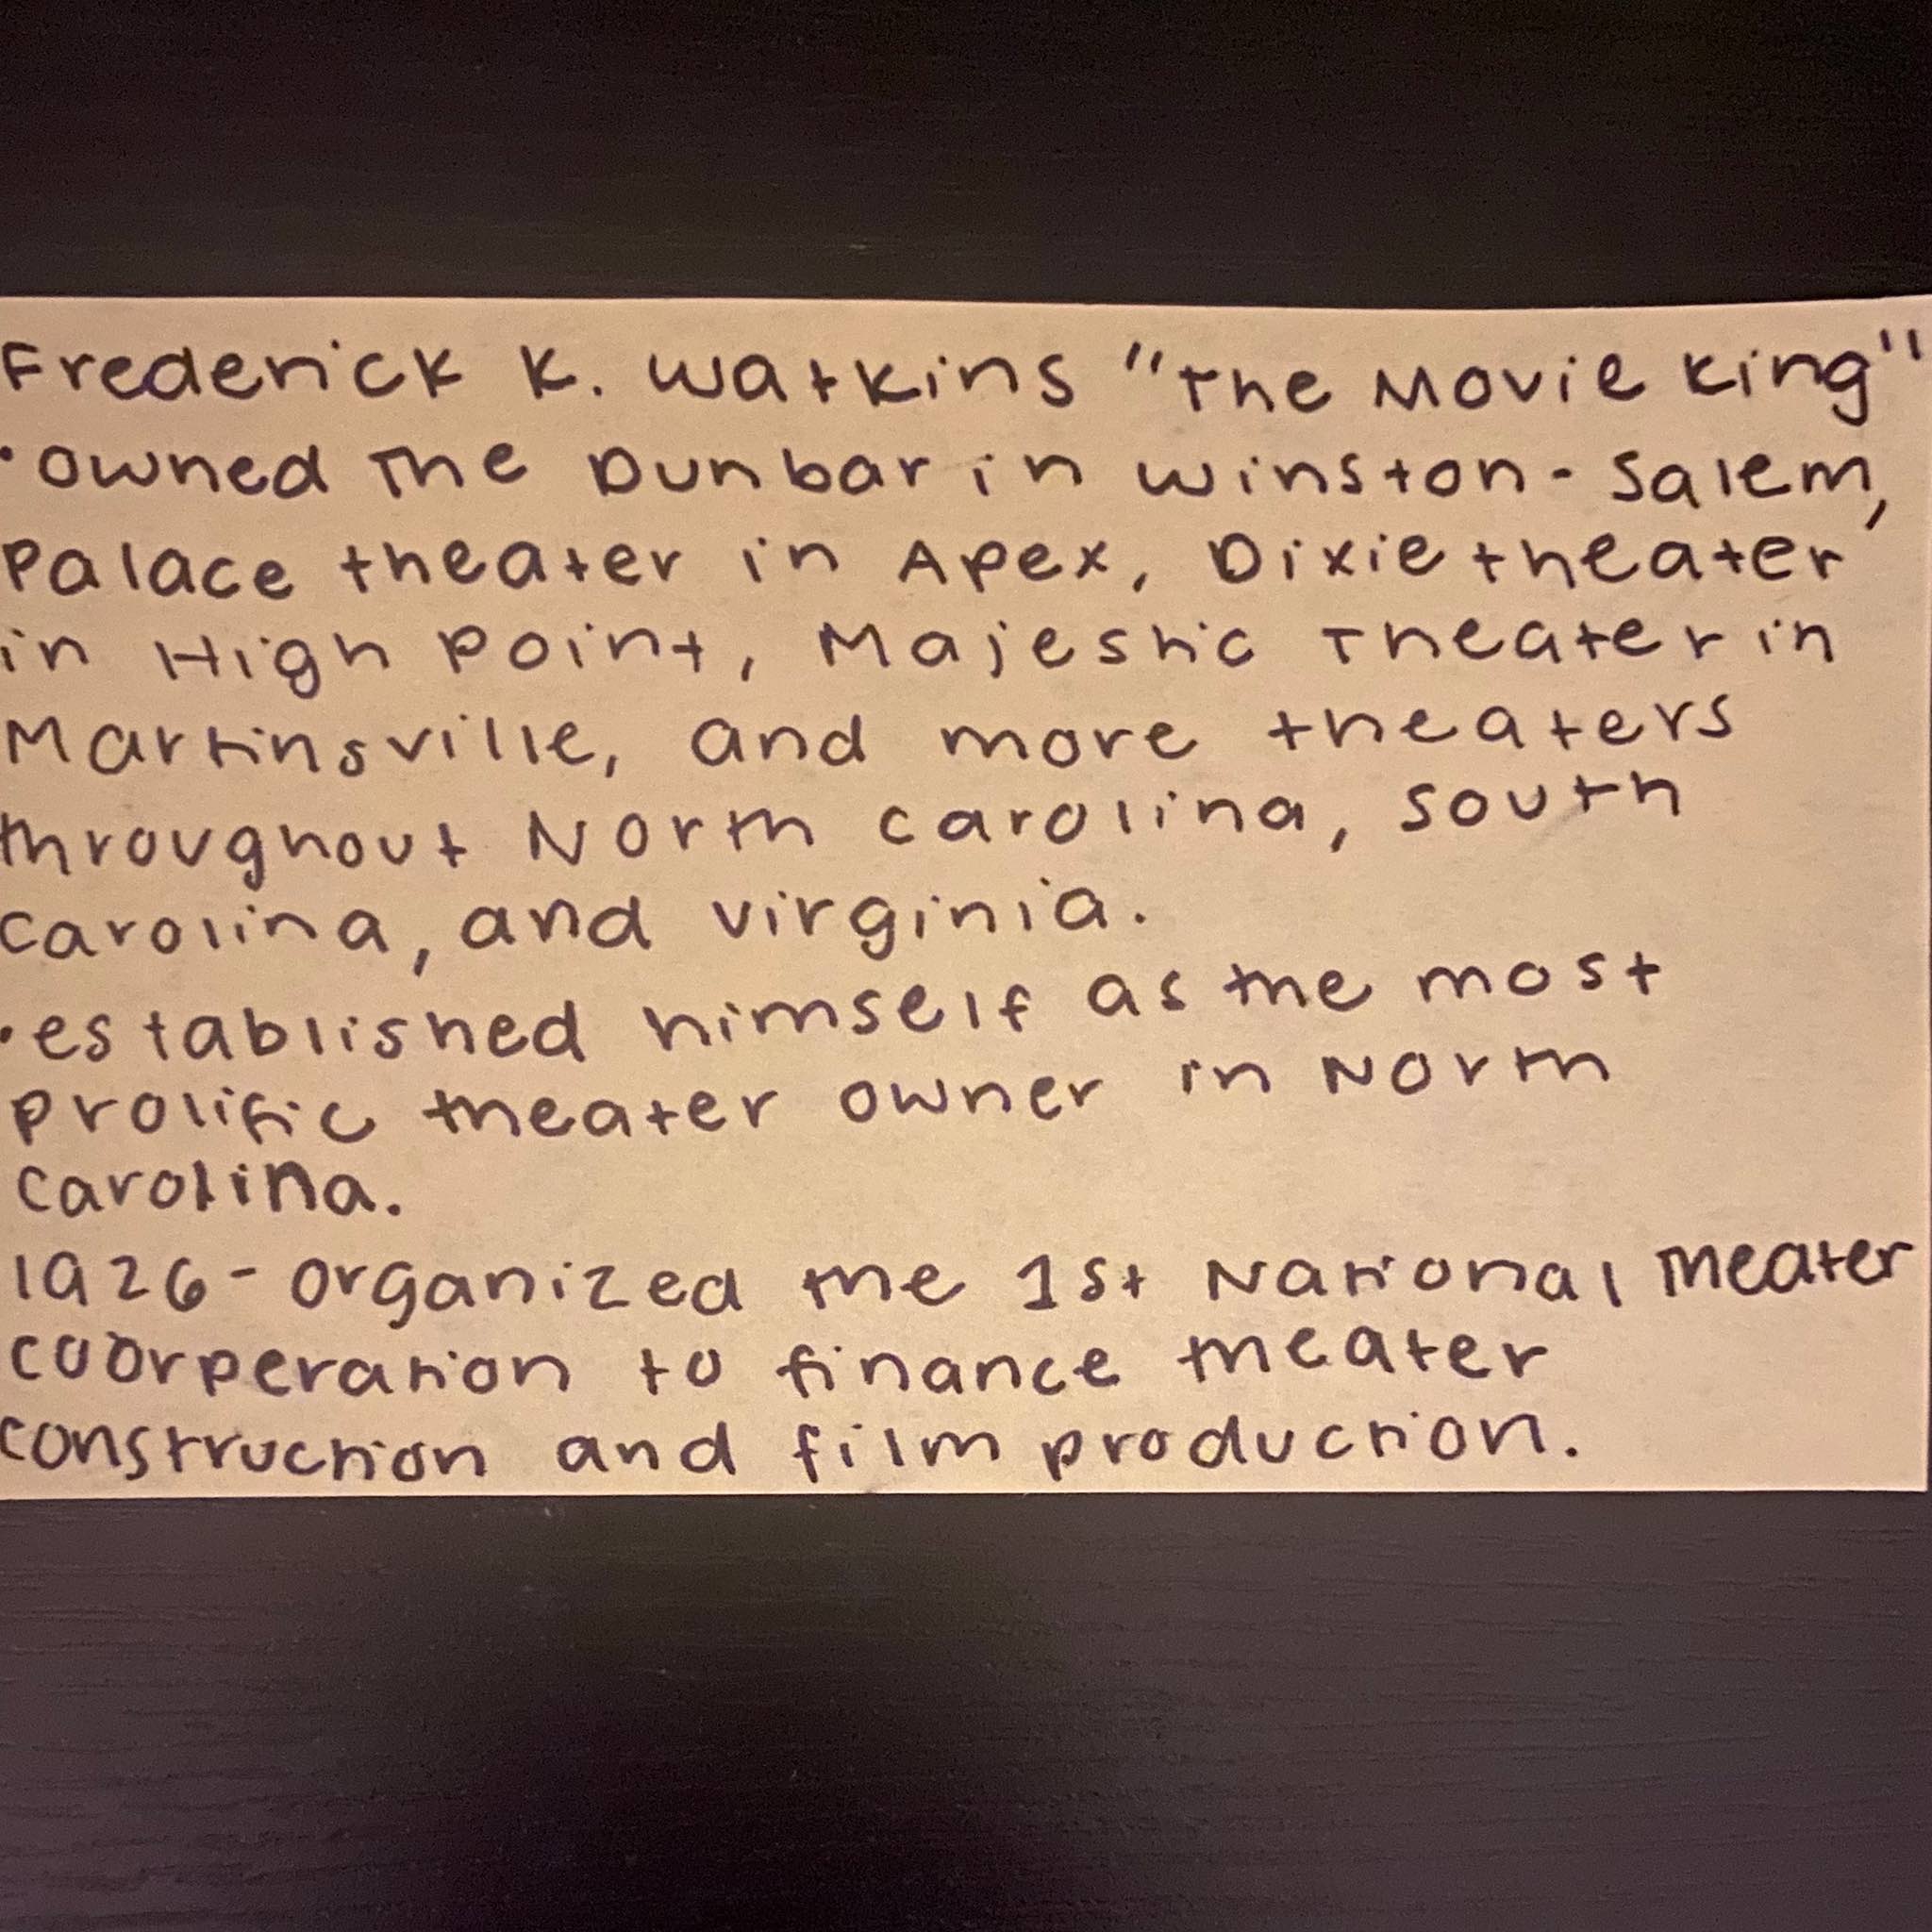 Frederick K. Watkins "The Movie King"
• owned the Dunbar in Winston-Salem,
Palace theater in Apex, Dixie theater
in High Point, Majestic Theater in
Martinsville, and more theaters
throughout North Carolina, South
Carolina, and Virginia.
• established himself as the most
prolific theater owner in North
Carolina.
1926 - organized the 1st National Theater
coorperation to finance theater
construction and film production.